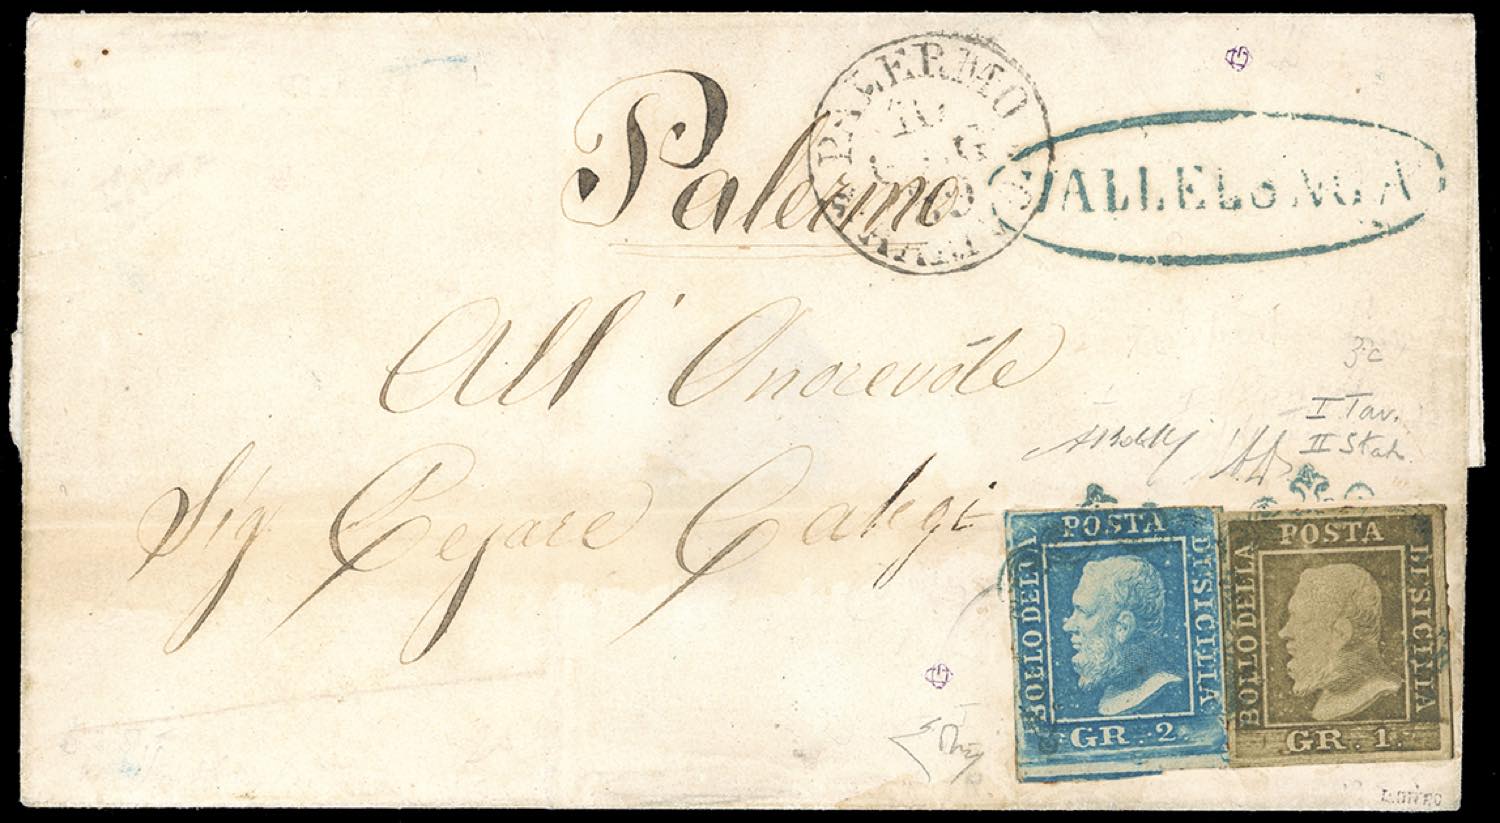 Palermo
PALERMO
VALLELUNGA
All' Onorevole
Sig Cesare Calegi
3c
I Tav.
II Stat.
POSTA
BOLLO DELLA
DI SICILIA
GR. 2.
POSTA
BOLLO DELLA
DI SICILIA
GR. 1.